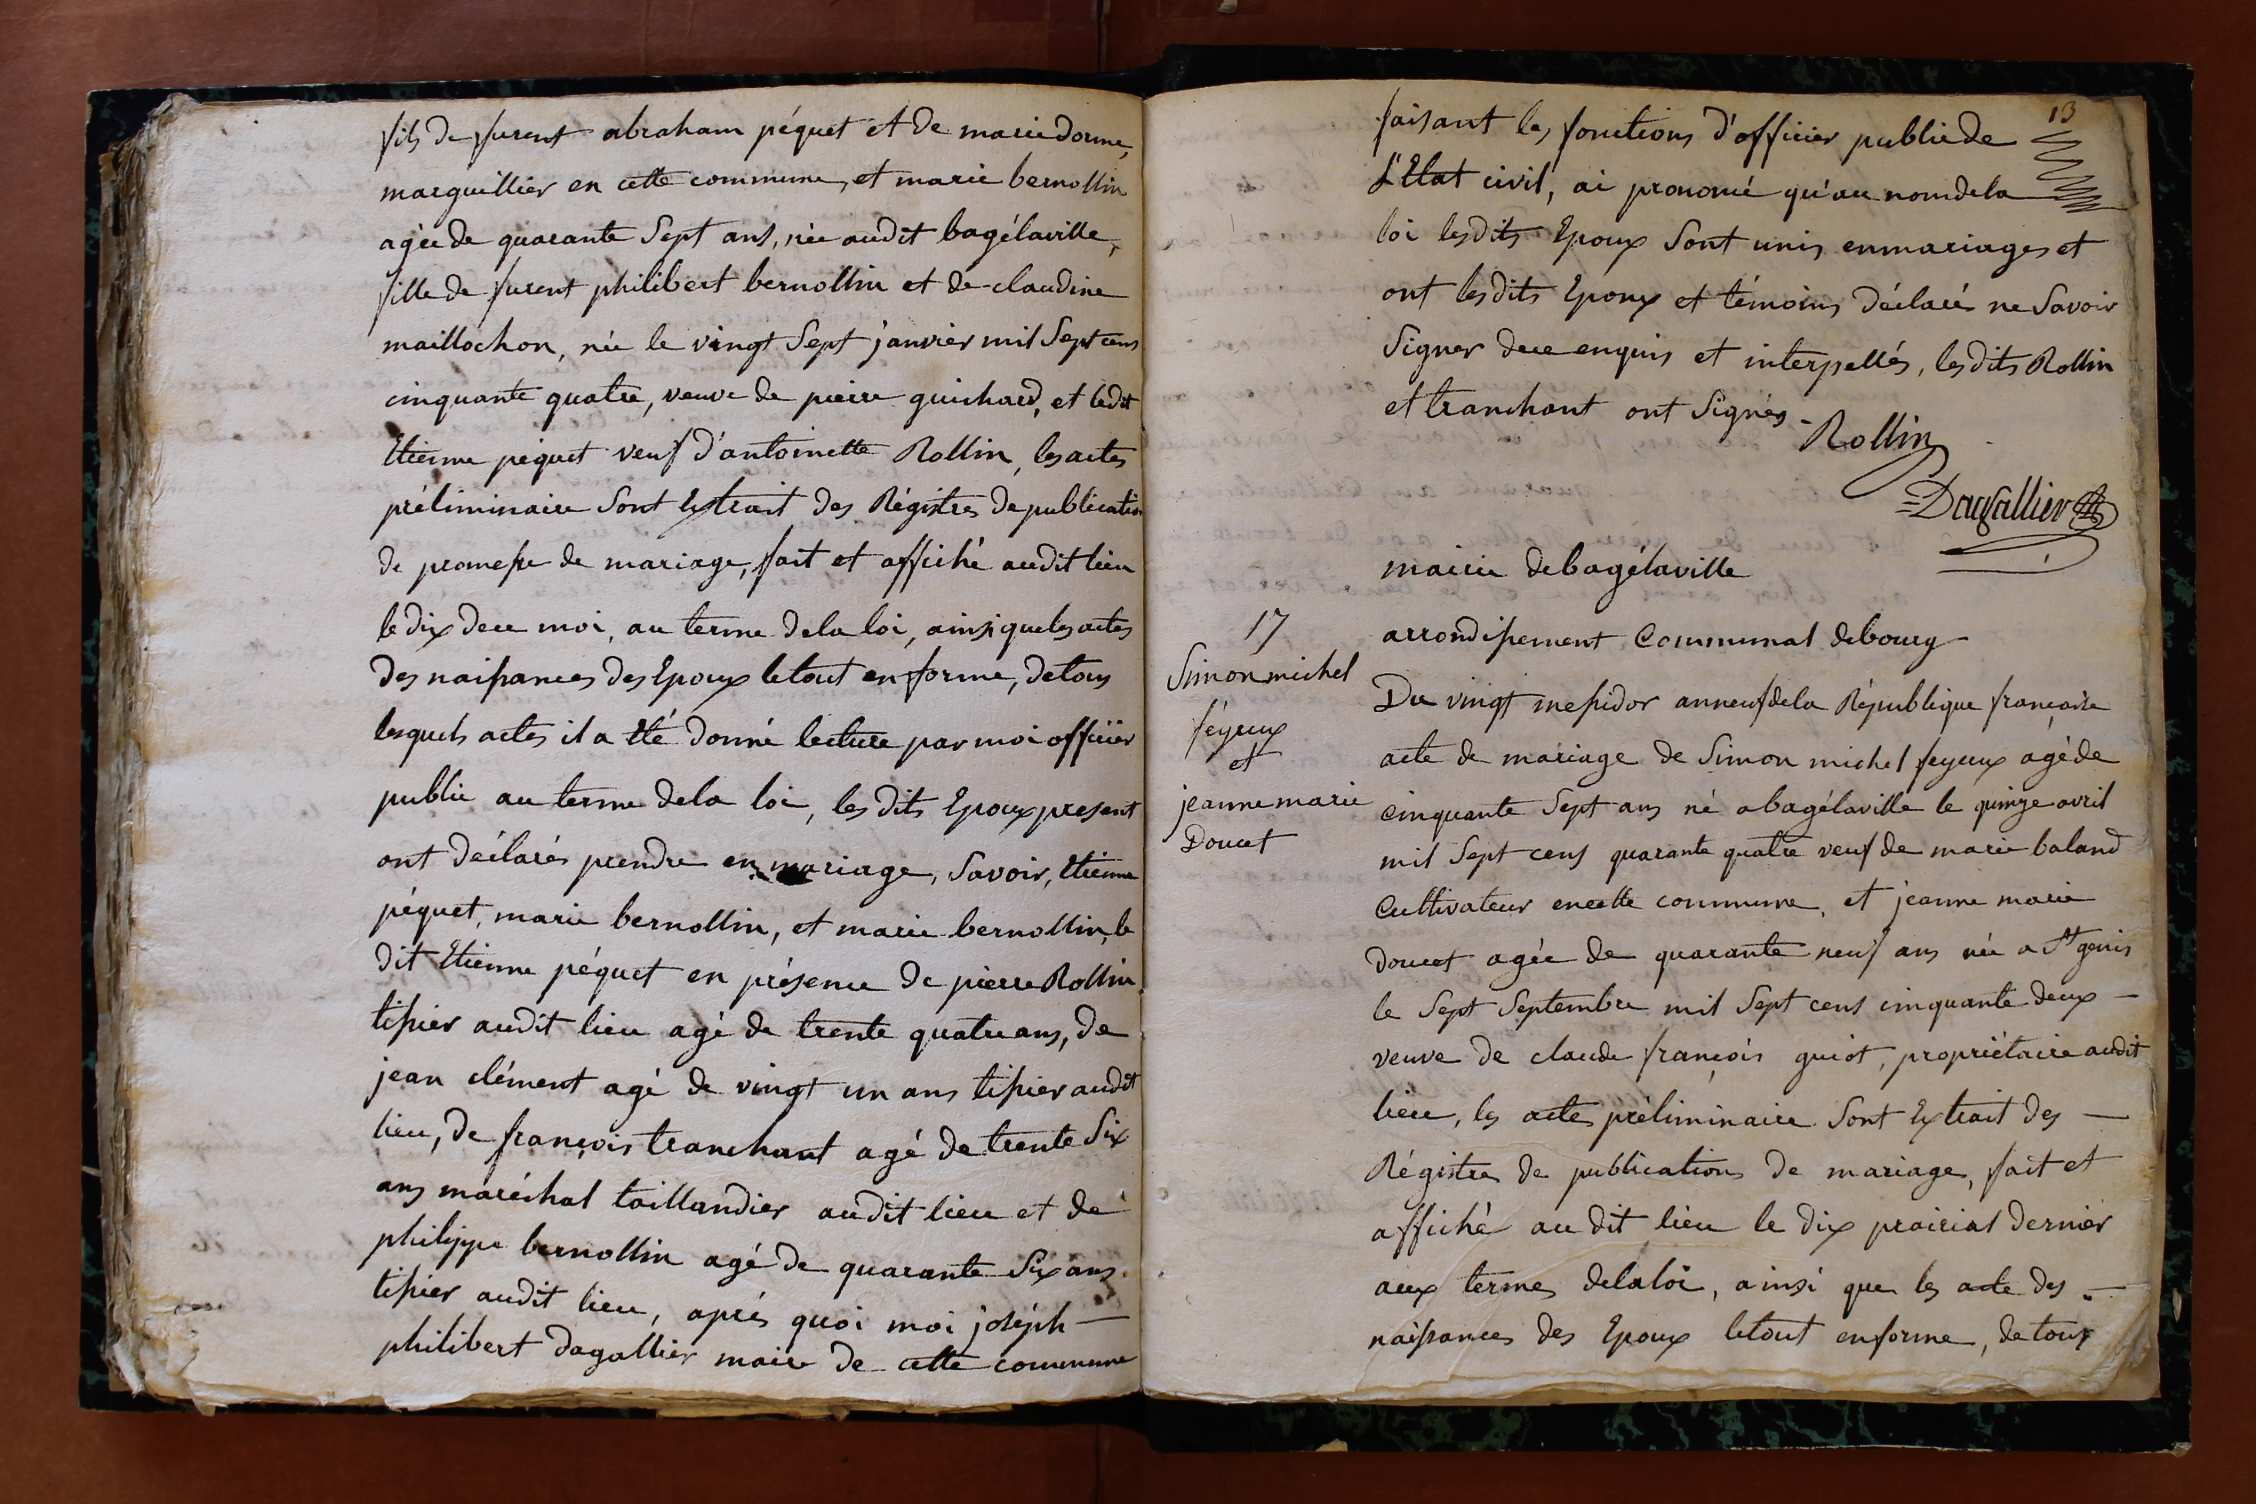 fils de furent abraham péquet et de marie dorme,
marguillier en cette commune, et marie bernollin
agée de quarante Sept ans, née audit bagélaville,
fille de furent philibert bernollin et de claudine
maillochon, née le vingt Sept janvier mil Sept cens
cinquante quatre, veuve de pierre guichard, et ledit
Etienne péquet veuf d'antoinette Rollin, les actes
préliminaire Sont Extrait des Régistres de publication
de promesse de mariage, fait et affiché audit lieu
le dix dece moi, au terme dela loi, ainsi queles actes
des naissances des Epoux letout en forme, detous
lesquels actes il a Eté donné lecture par moi officier
public au terme dela loi, les dits Epoux present
ont déclarés prendre en mariage, Savoir, Etienne
péquet, marie bernollin, et marie bernollin, le
dit Etienne péquet en présence de pierre Rollin
tissier audit lieu agé de trente quatre ans, de
jean clément agé de vingt un ans tissier audit
lieu, de françois tranchant agé de trente Six
ans maréchal taillandier audit lieu et de
philippe bernollin agé de quarante Six ans
tissier audit lieu, aprés quoi moi joséph
philibert dagallier maire de cette commune
13
faisant les fonctions d'officier publicde
L'Etat civil, ai prononcé qu'au nom dela
loi lesdits Epoux Sont unis enmariages et
ont lesdits Epoux et témoins déclarés ne Savoir
Signer dece enquis et interpellés, lesdits Rollin
et tranchant ont Signés -
Rollin
Dagallier
mairie debagélaville
arrondissement Communal debourg
17
Simon michel
féyeux
et
jeanne marie
Doucet
Du vingt messidor anneuf dela République française
acte de mariage de Simon michel feyeux agé de
cinquante Sept ans né abagélaville le quinze avril
mil Sept cens quarante quatre veuf de marie baland
Cultivateur encette commune, et jeanne marie
doucet agée de quarante neuf ans née a St genis
le Sept Septembre mil Sept cens cinquante deux —
veuve de claude françois guiot, propriétaire audit
lieu, les actes préliminaire Sont Extrait des —
Régistres de publications de mariage, fait et
affiché au dit lieu le dix prairial dernier
aux termes delaloi, ainsi que les acte des —
naissances des Epoux letout enforme, de tous